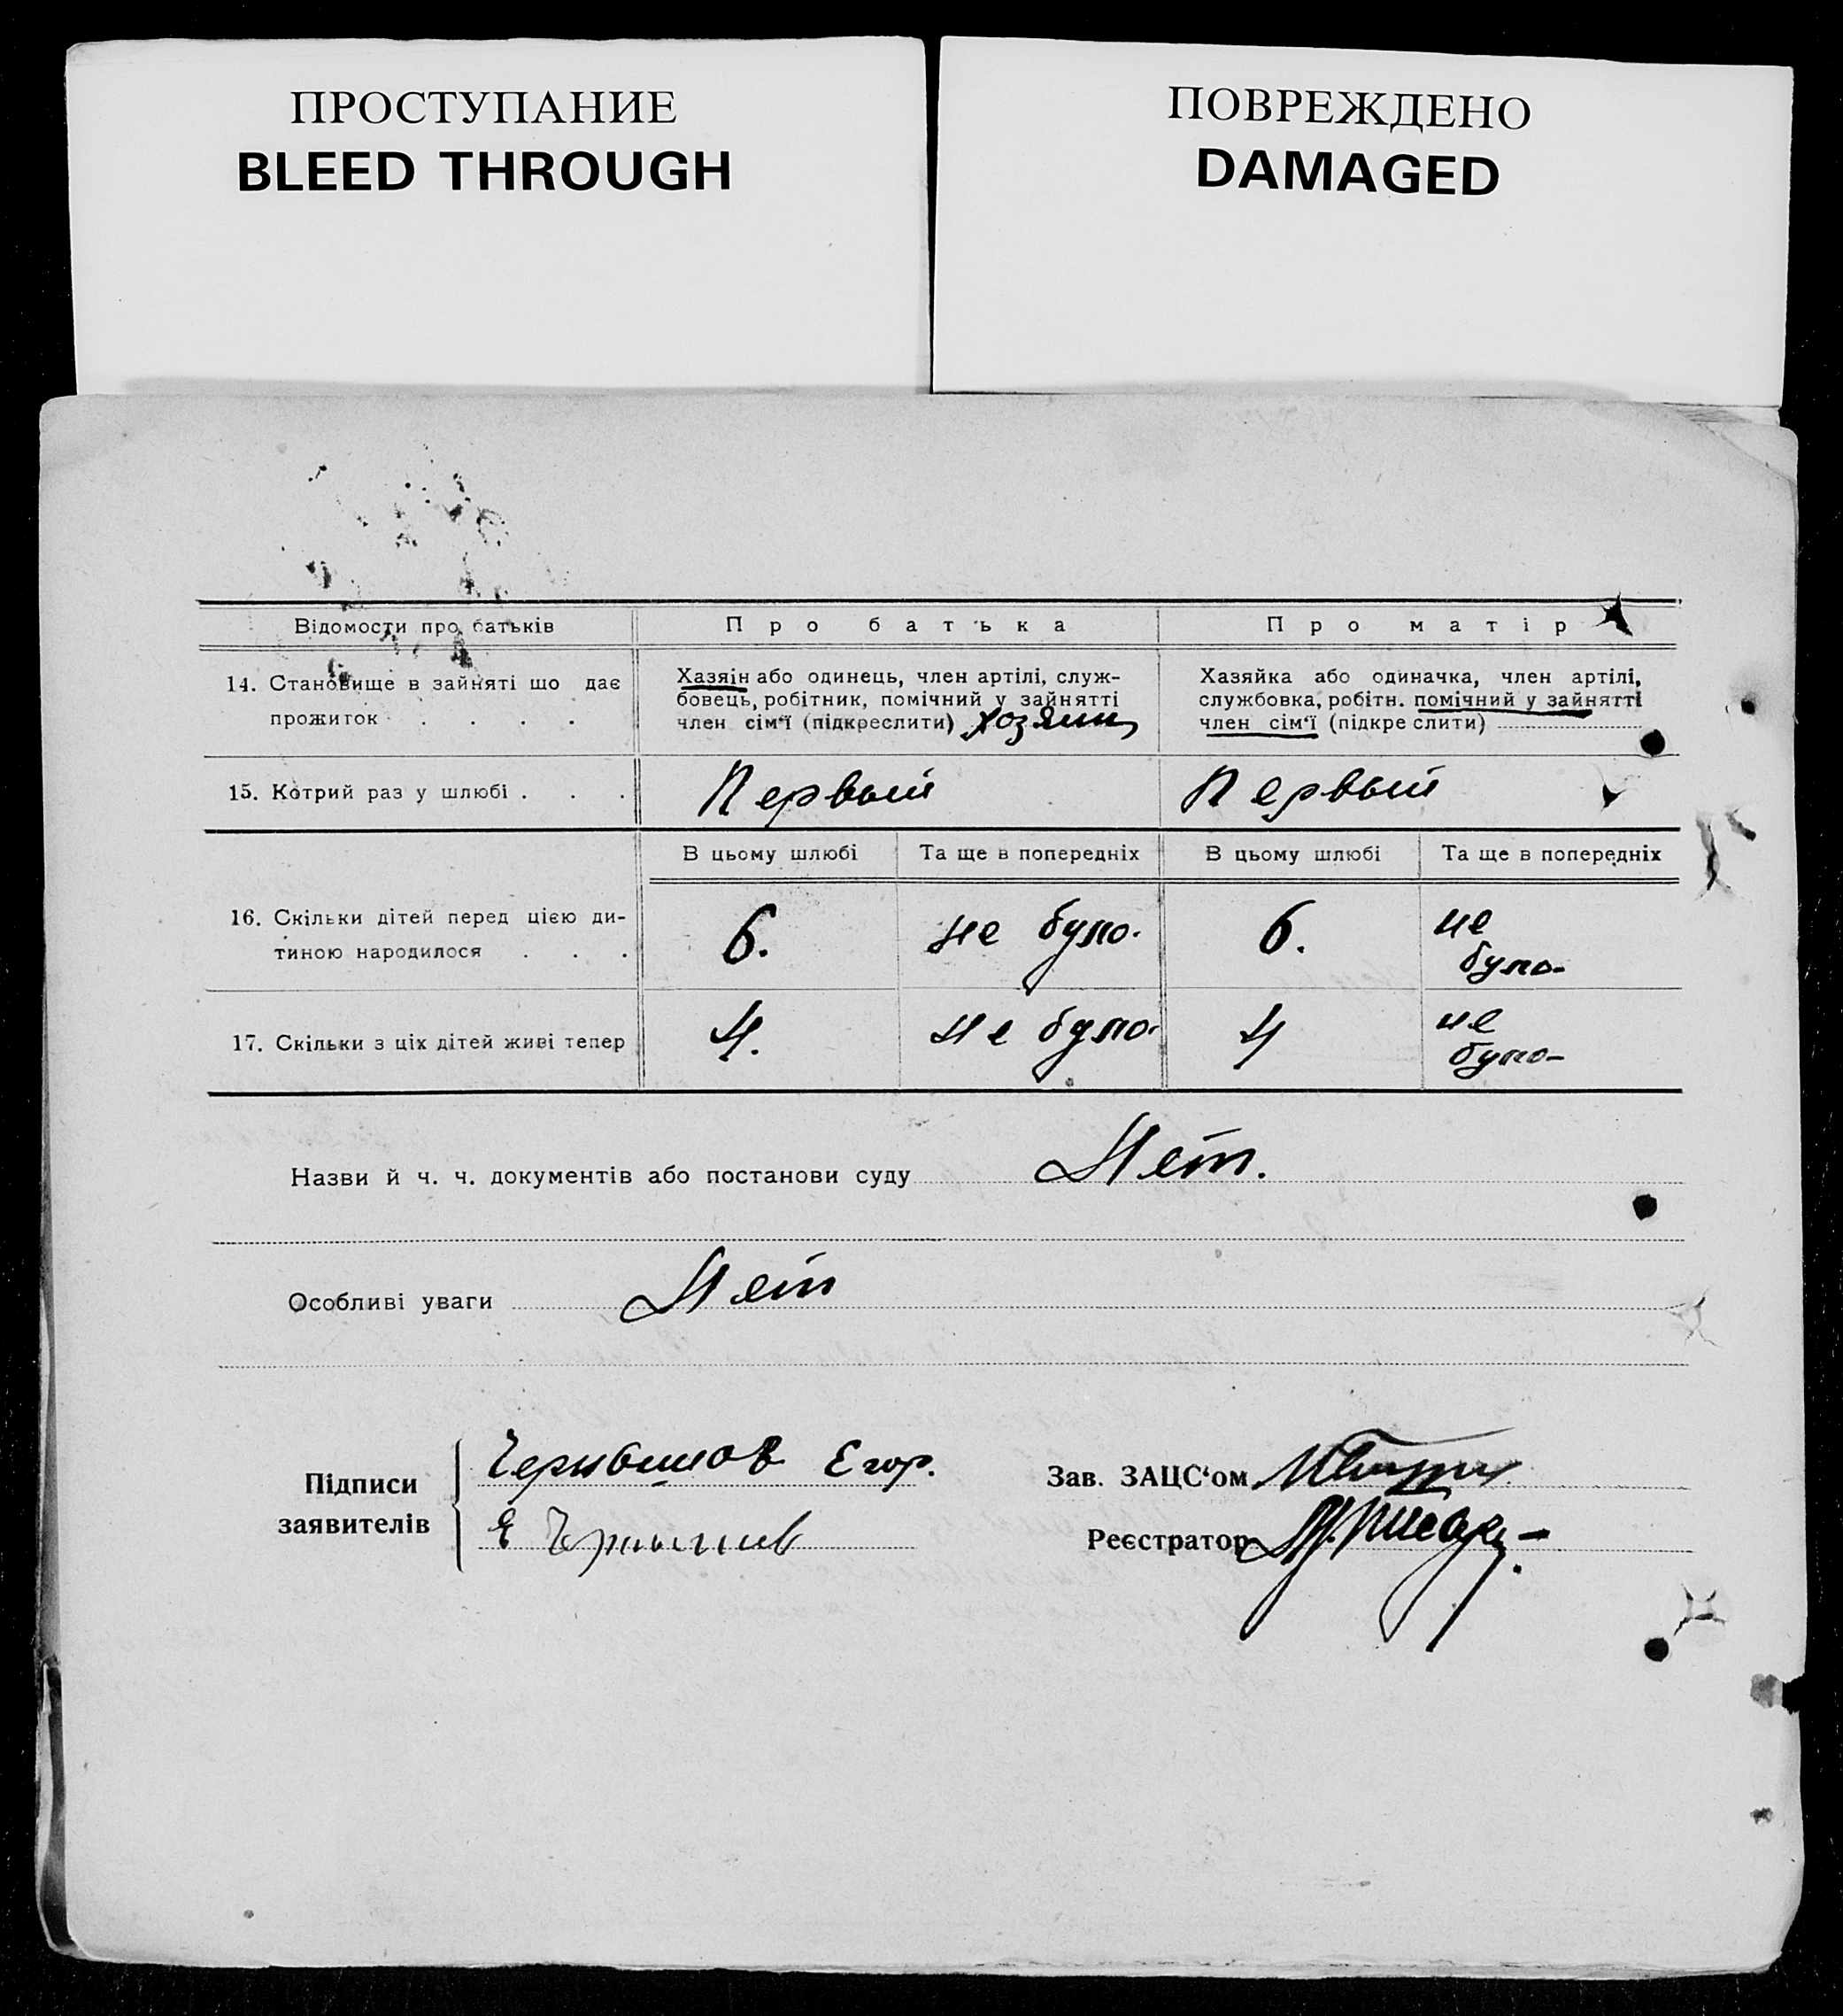 ПРОСТУПАНИЕ
BLEED THROUGH
ПОВРЕЖДЕНО
DAMAGED
Відомости про батьків
Про батька
Про матір
14. Становище в зайняті шо дає
прожиток . . . .
Хазяін або одинець, член артілі, служ-
бовець, робітник, помічний у зайнятті
член сім'ї (підкреслити) хозяин
Хазяйка або одиначка, член артілі,
службовка, робітн. помічний у зайнятті
член сім'ї (підкре слити)
15. Котрий раз у шлюбі . . .
Первый
Первый
В цьому шлюбі
Та ще в попередніх
В цьому шлюбі
Та ще в попередніх
16. Скільки дітей перед цією ди-
тиною народилося . . .
6.
не було.
6.
не
було-
17. Скільки з ціх дітей живі тепер
4.
не було.
4
не
було-
Назви й ч. ч. документів або постанови суду Нет.
Особливі уваги Нет
Підписи
заявителів
Чернышов Егор.
Е
Зав. ЗАЦС'ом
Реєстратор